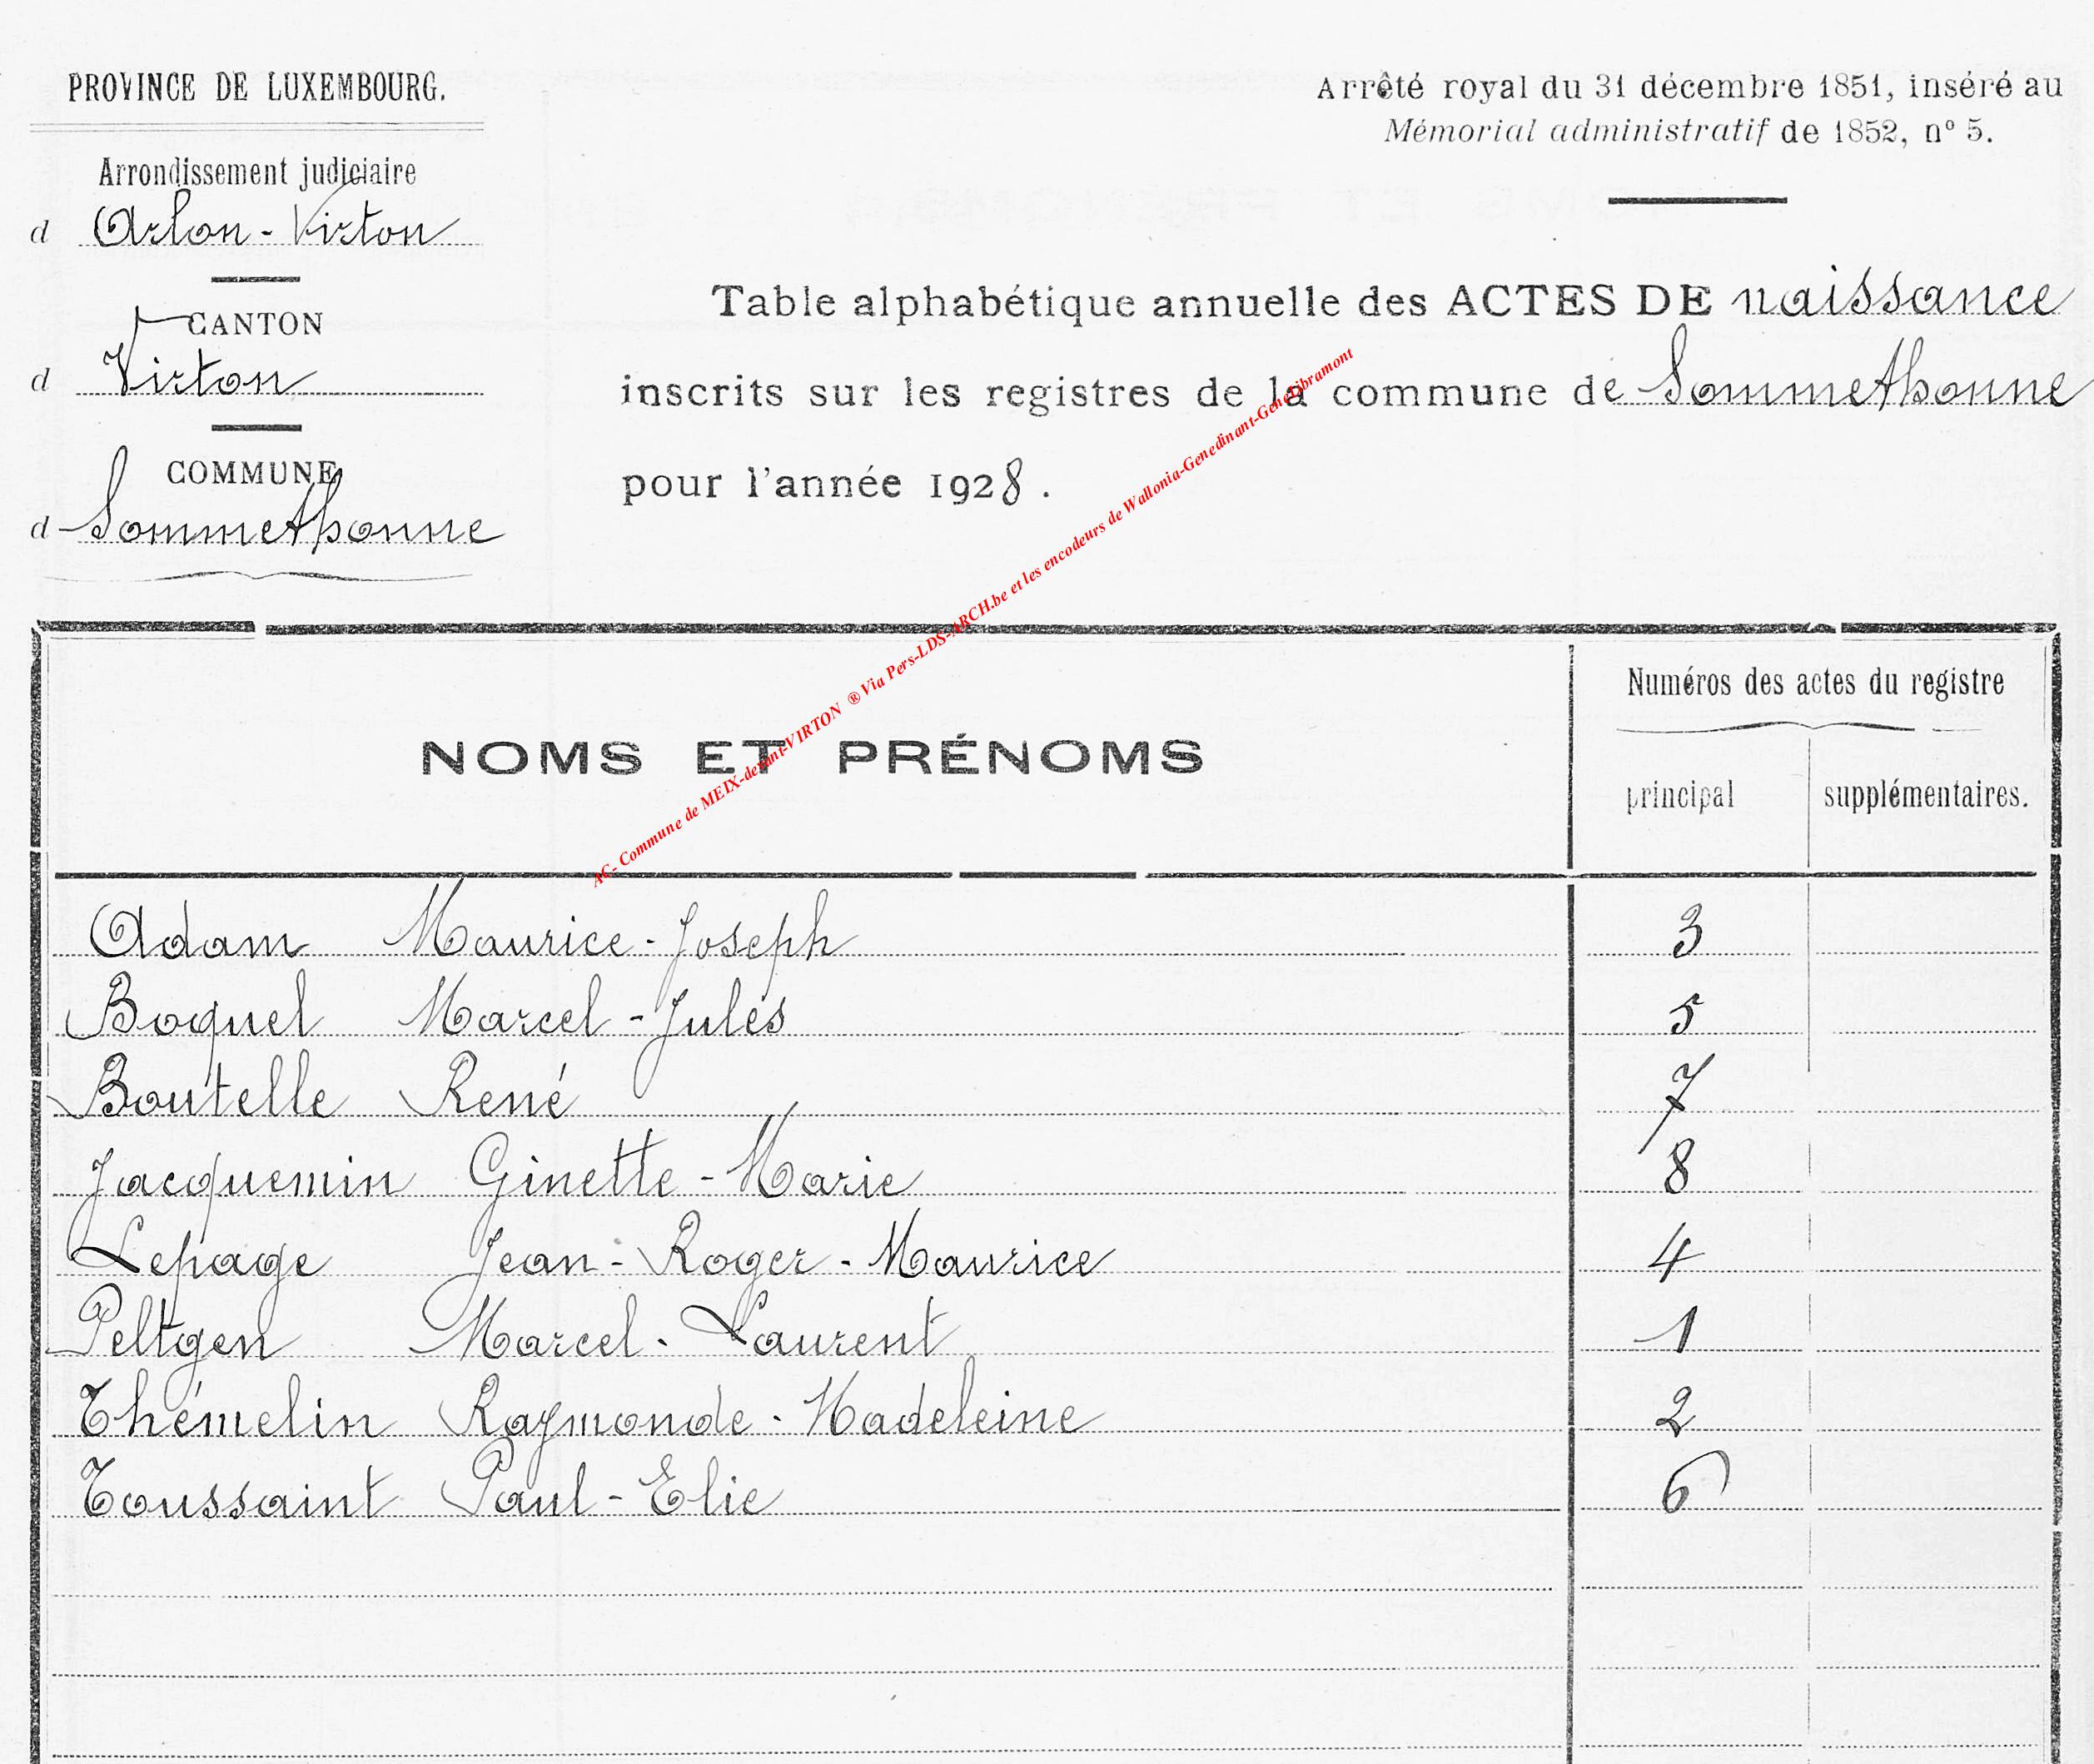 PROVINCE DE LUXEMBOURG.
Arrondissement judiciaire
d Arlon - Virton
CANTON
d Virton
COMMUNE
d Sommethonne
Arrêté royal du 31 décembre 1851, inséré au
Mémorial administratif de 1852, nº 5.
Table alphabétique annuelle des ACTES DE naissance
inscrits sur les registres de la commune de Sommethonne
pour l'année 1928.
AC- Commune de MEIX-devant-VIRTON ® Via Pers-LDS-ARCH.be et les encodeurs de Wallonia-Genedinant-GeneLibramont
NOMS ET PRÉNOMS
Numéros des actes du registre
principal supplémentaires.
Adam Maurice-Joseph 3
Boquel Marcel-Jules 5
Boutelle René 7
Jacquemin Ginette-Marie 8
Lepage Jean-Roger-Maurice 4
Peltgen Marcel-Laurent 1
Thémelin Raymonde-Madeleine 2
Toussaint Paul-Elie 6